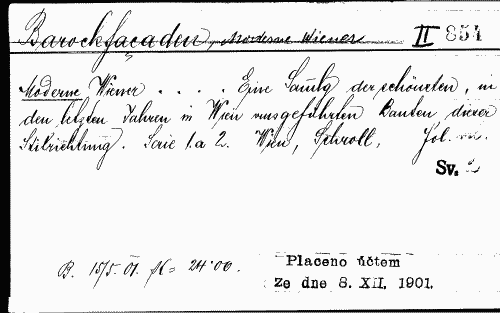 Barockfaçaden, Moderne Wiener II 854
Moderne Wiener . . . . Eine Samlg der schönsten, in
den letzten Jahren in Wien ausgeführten Bauten dieser
Stilrichtung. Serie 1. a 2. Wien, Schroll, Fol.
Sv. 2
B. 15/5. 01. fK= 24.00.
Placeno účtem
ze dne 8. XII. 1901.